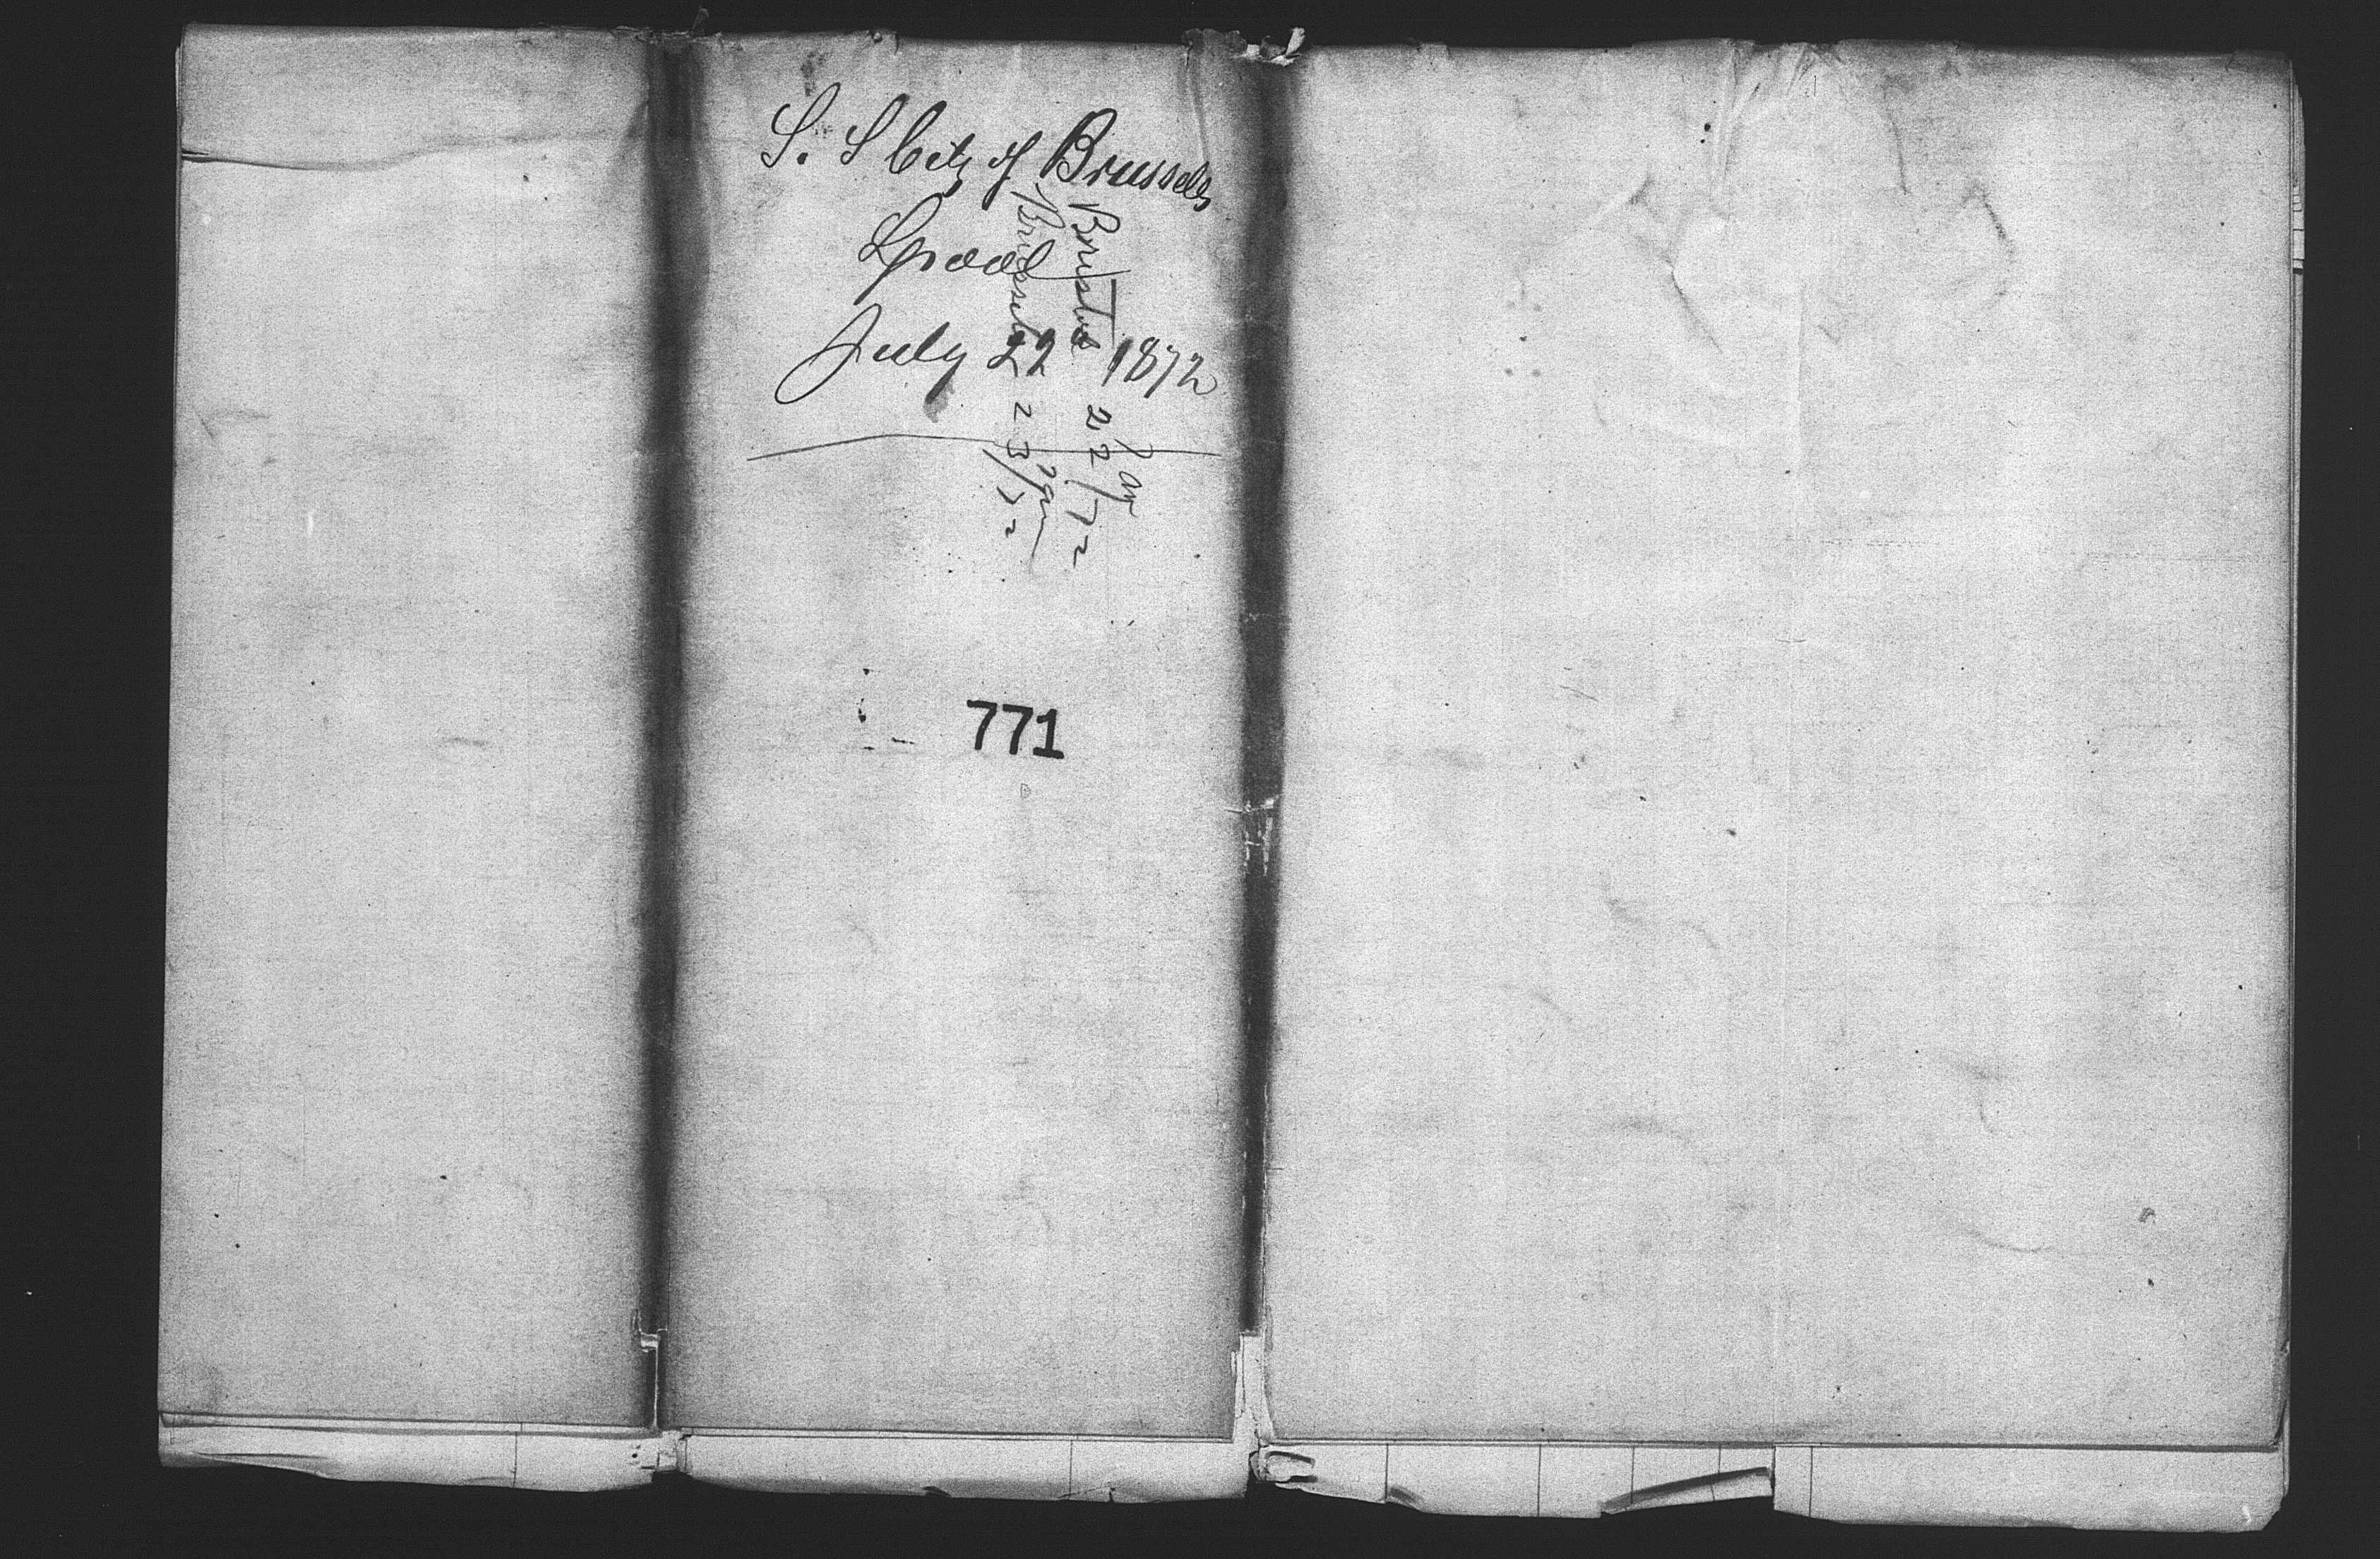 S. S City of Brussels
Lpool
July 22 1872
Brussels 23/72
22/72
771